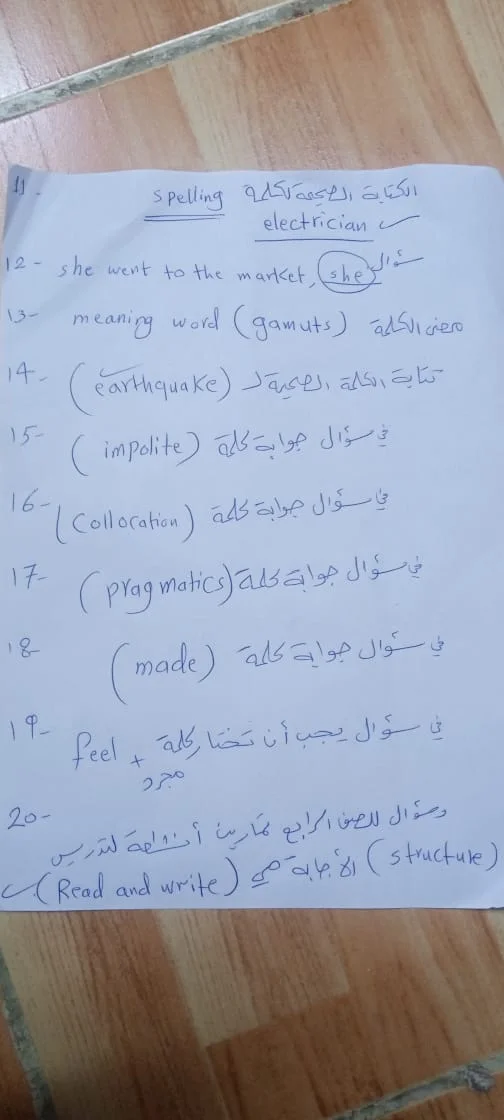 11- spelling الكتابة الصحيحة لكلمة
electrician
12- she went to the market, she سؤال
13- meaning word (gamuts) معنى الكلمة
14- (earthquake) كتابة الكلمة الصحيحة لـ
15- (impolite) في سؤال جوابة كلمة
16- (Collocation) في سؤال جوابة كلمة
17- (pragmatics) في سؤال جوابة كلمة
18- (made) في سؤال جوابة كلمة
19- في سؤال يجب أن تختار كلمة feel +
مجرد
20- وسؤال للصف الرابع تمارين أنشطة لتدريس
(structure) الأجابة هي (Read and write)